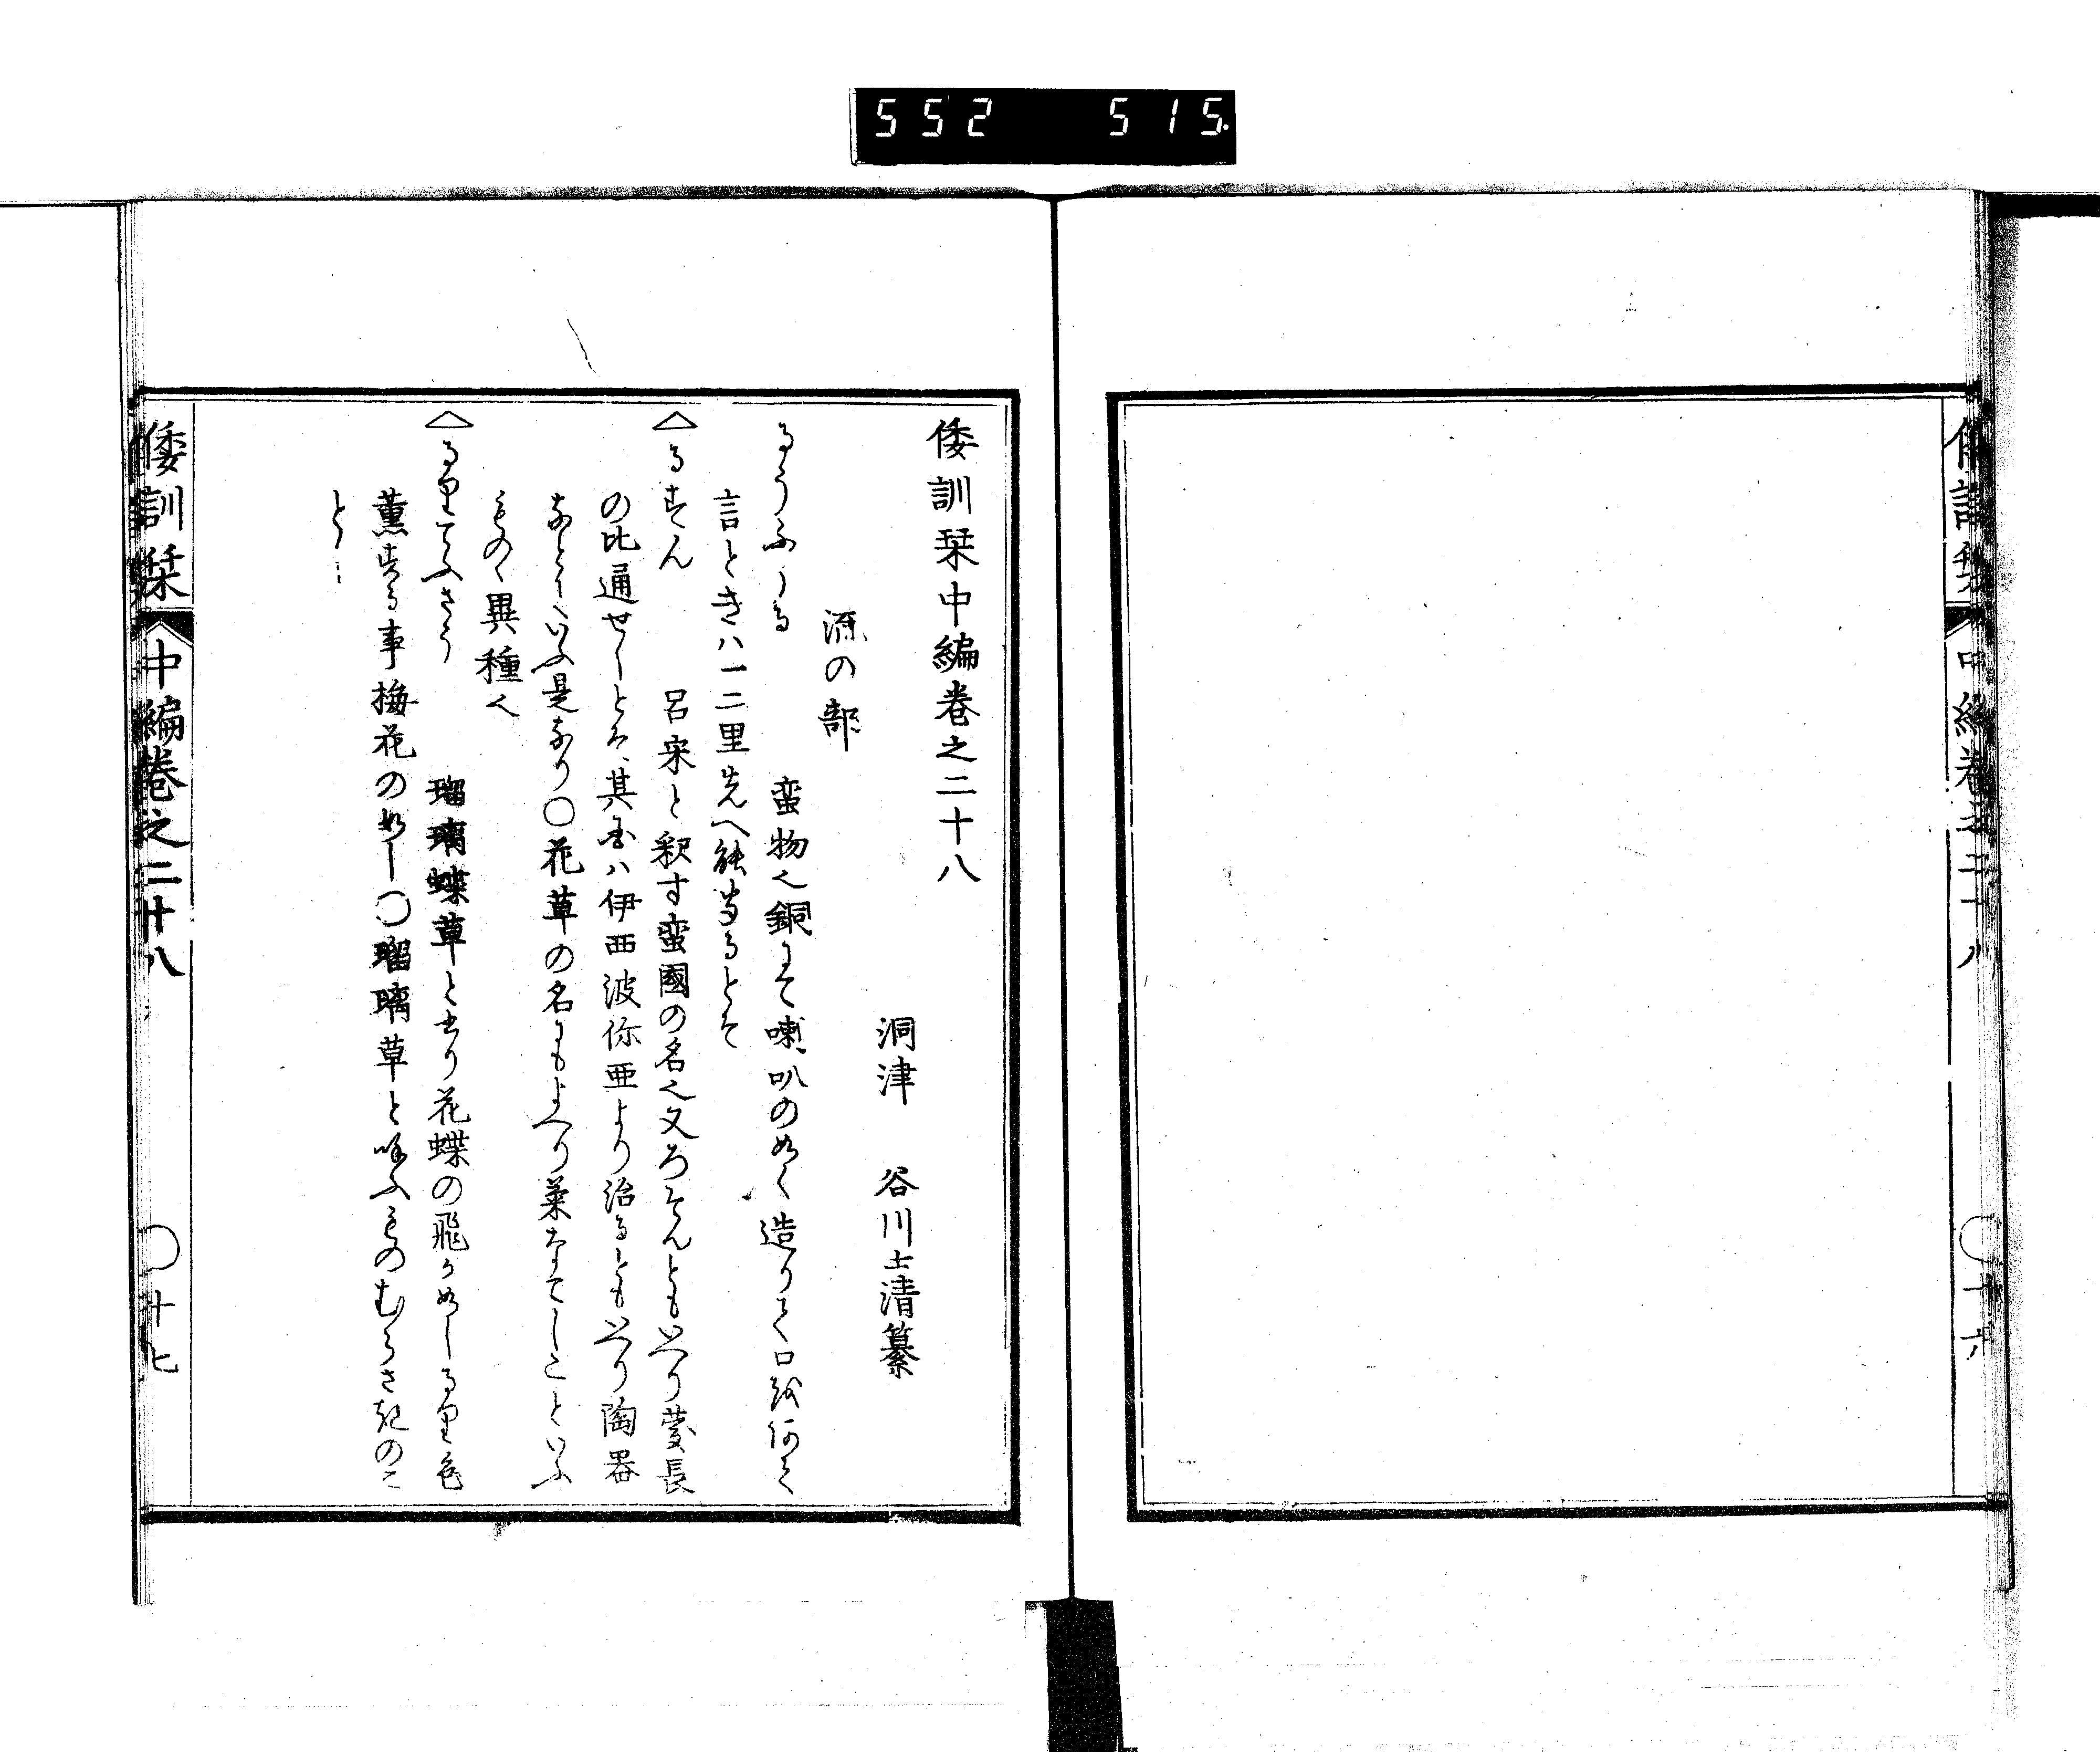 552 515
倭訓栞 中編卷之二十八 〇十六
倭訓栞中編卷之二十八
洞津 谷川士清纂
流の部
るうふしる 蛮物也銅にて喇叭の如く造りて口に何て
言ときハ一二里先へ能当るとそ
るすん 呂宋と釈す蛮國の名也又ろそんともいへり慶長
の比通せしとそ其国ハ伊西波你亜より治るともいへり陶器
なとにいふ是なり〇花草の名にもよへり菜なてしことといふ
ものゝ異種也
るりてふさう 瑠璃蝶草と書り花蝶の飛か如しるり色
薫する事梅花の如し〇瑠璃草と呼ふものむらさきのこ
とし
倭訓栞 中編卷之二十八 〇十七